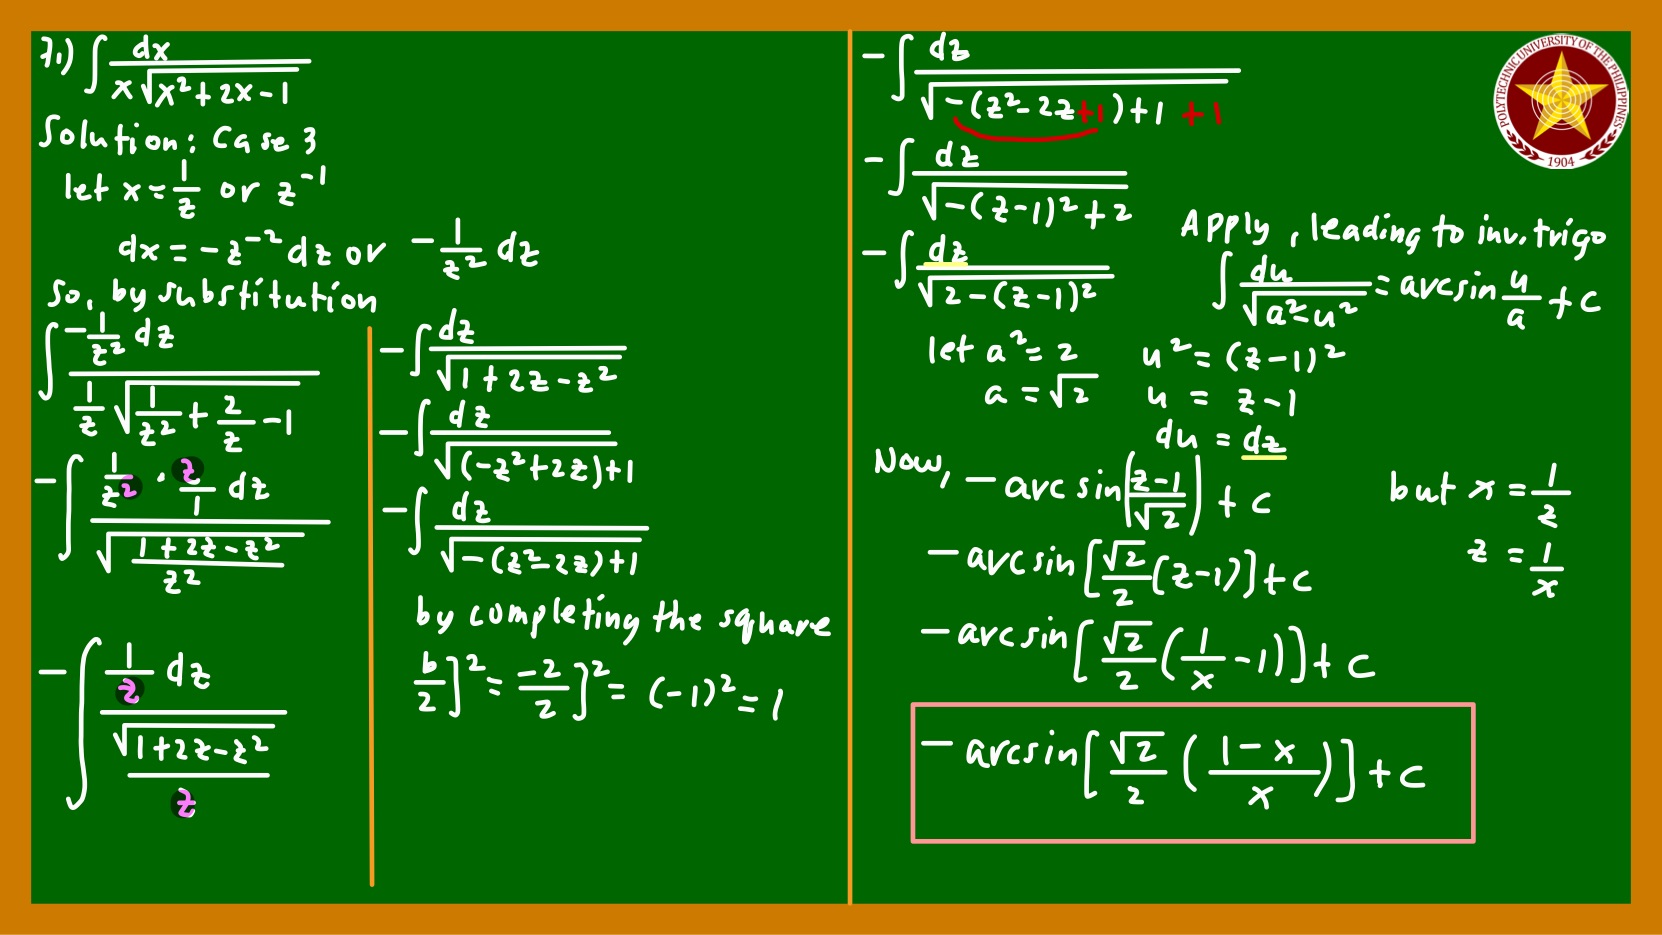 7.) ∫ dx / (x√(x² + 2x - 1))
Solution: Case 3
let x = 1/z or z⁻¹
dx = -z⁻² dz or -1/z² dz
So, by substitution
∫ (-1/z² dz) / (1/z √(1/z² + 2/z - 1))
-∫ (1/z² · z/1 dz) / √((1 + 2z - z²)/z²)
-∫ (1/z dz) / (√(1+2z-z²) / z)
-∫ dz / √(1 + 2z - z²)
-∫ dz / √((-z²+2z)+1)
-∫ dz / √(-(z²-2z)+1)
by completing the square
b/2]² = -2/2]² = (-1)² = 1
-∫ dz / √(-(z²-2z+1)+1 +1)
-∫ dz / √(-(z-1)²+2)
-∫ dz / √(2-(z-1)²)
Apply, leading to inv. trigo
∫ du / √(a²-u²) = arcsin u/a + c
let a² = 2 u² = (z-1)²
a = √2 u = z-1
du = dz
Now, - arc sin((z-1)/√2) + c
but x = 1/z
- arcsin[√2/2 (z-1)] + c
z = 1/x
- arcsin[√2/2 (1/x - 1)] + c
- arcsin[√2/2 ((1-x)/x)] + c
POLYTECHNIC UNIVERSITY OF THE PHILIPPINES
1904